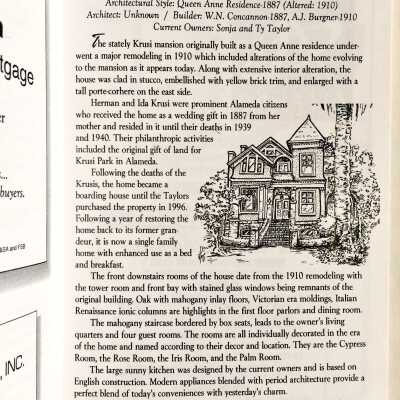 Architectural Style: Queen Anne Residence-1887 (Altered: 1910)
Architect: Unknown / Builder: W.N. Concannon-1887, A.J. Burgner-1910
Current Owners: Sonja and Ty Taylor
The stately Krusi mansion originally built as a Queen Anne residence under-
went a major remodeling in 1910 which included alterations of the home evolving
to the mansion as it appears today. Along with extensive interior alteration, the
house was clad in stucco, embellished with yellow brick trim, and enlarged with a
tall porte-corhere on the east side.
Herman and Ida Krusi were prominent Alameda citizens
who received the home as a wedding gift in 1887 from her
mother and resided in it until their deaths in 1939
and 1940. Their philanthropic activities
included the original gift of land for
Krusi Park in Alameda.
Following the deaths of the
Krusis, the home became a
boarding house until the Taylors
purchased the property in 1996.
Following a year of restoring the
home back to its former gran-
deur, it is now a single family
home with enhanced use as a bed
and breakfast.
The front downstairs rooms of the house date from the 1910 remodeling with
the tower room and front bay with stained glass windows being remnants of the
original building. Oak with mahogany inlay floors, Victorian era moldings, Italian
Renaissance ionic columns are highlights in the first floor parlors and dining room.
The mahogany staircase bordered by box seats, leads to the owner's living
quarters and four guest rooms. The rooms are all individually decorated in the era
of the home and named according to their decor and location. They are the Cypress
Room, the Rose Room, the Iris Room, and the Palm Room.
The large sunny kitchen was designed by the current owners and is based on
English construction. Modern appliances blended with period architecture provide a
perfect blend of today's conveniences with yesterday's charm.
tgage
er
s...
buyers.
and FSB
, INC.